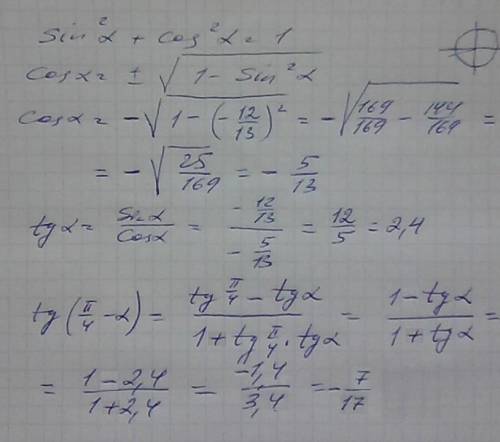 sin²α + cos²α = 1
cosα = ± √(1 − sin²α)
cosα = −√(1 − (−12/13)²) = −√(169/169 − 144/169) =
= −√(25/169) = − 5/13
tgα = sinα/cosα = (−12/13)/(−5/13) = 12/5 = 2,4
tg(π/4 − α) = (tg π/4 − tgα)/(1 + tg π/4 · tgα) = (1 − tgα)/(1 + tgα) =
= (1 − 2,4)/(1 + 2,4) = −1,4/3,4 = − 7/17